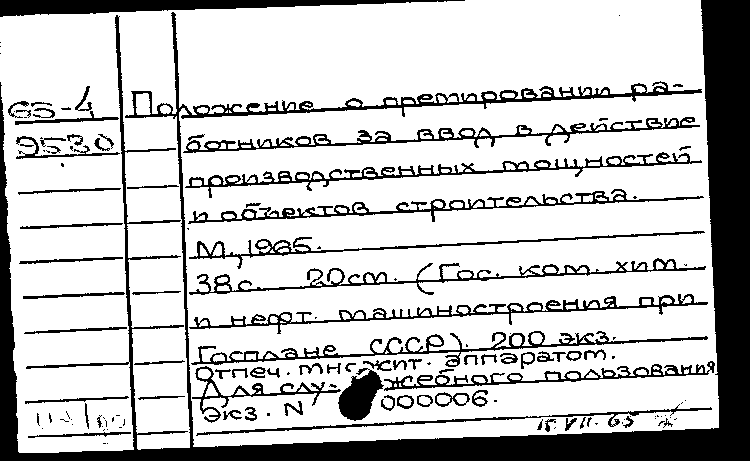 65-4 Положение о премировании ра-
9530 ботников за ввод в действие
производственных мощностей
и объектов строительства.
М., 1965.
38с. 20см. (Гос. ком. хим.
и нефт. машиностроения при
Госплане СССР). 200 экз.
Отпеч. множит. аппаратом.
Для служебного пользования
Экз. N 000006.
15.VII.65